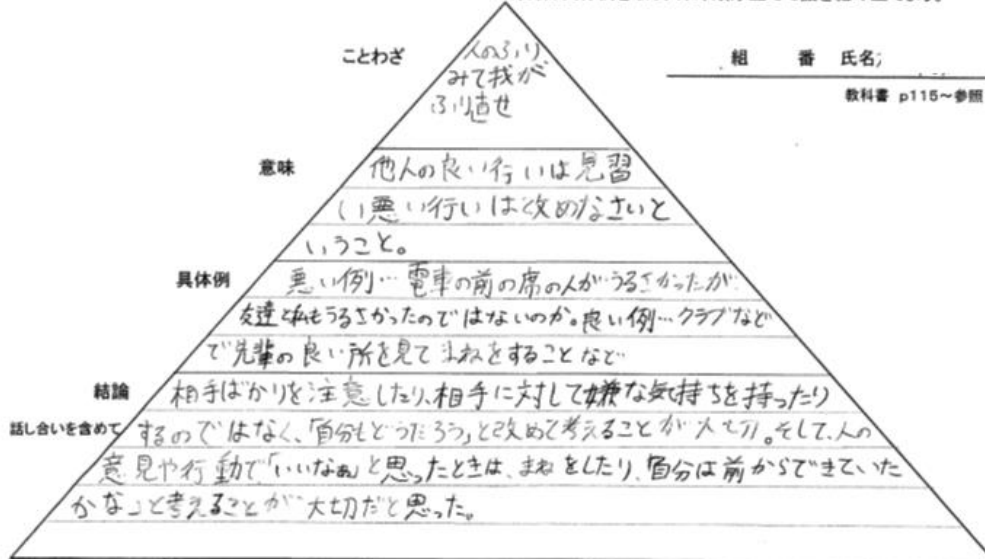 ことわざ
人のふり
みて我が
ふり直せ
組 番 氏名
教科書 p115〜参照
意味
他人の良い行いは見習
い悪い行いは改めなさいと
いうこと。
具体例
悪い例…電車の前の席の人がうるさかったが
友達と私もうるさかったのではないのか。良い例…クラブなど
で先輩の良い所を見てまねをすることなど
結論
相手ばかりを注意したり、相手に対して嫌な気持ちを持ったり
話し合いを含めて
するのではなく、「自分もどうだろう」と改めて考えることが大切。そして、人の
意見や行動で「いいなぁ」と思ったときは、まねをしたり、「自分は前からできていた
かな」と考えることが大切だと思った。